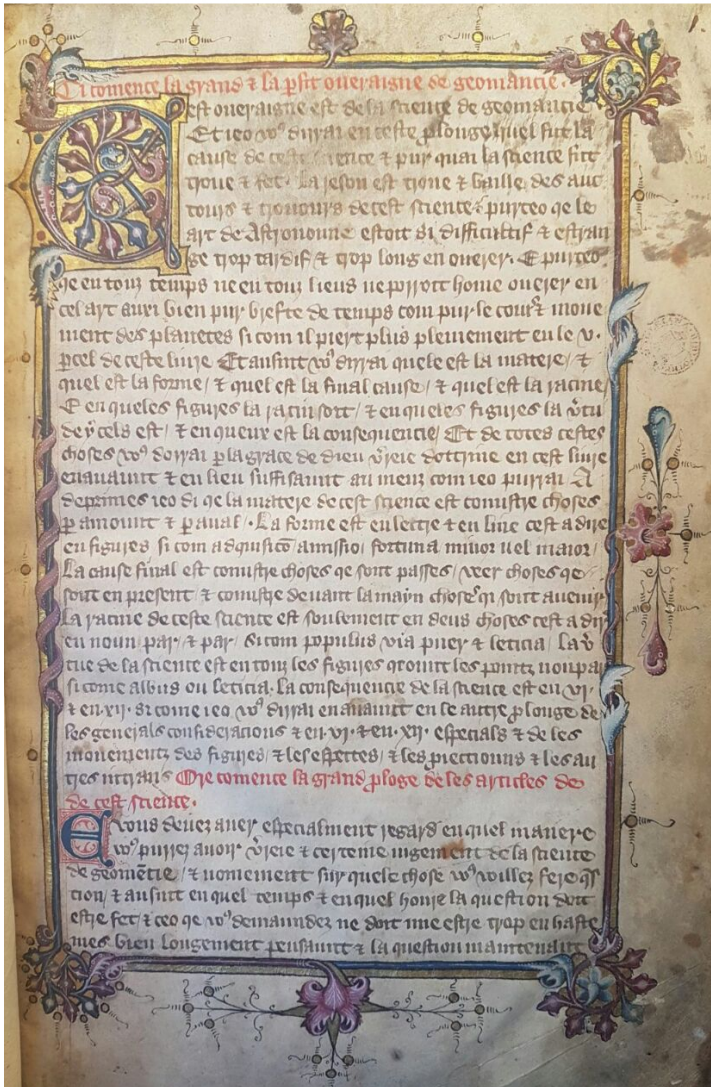 Ci comence la grand & la pfit oueraigne de geomancie.
Cest oueraigne est de la science de geomancie
Et ieo vo9 dirrai en ceste plonge quel fut la
cause de cest science & pur quai la science fut
troue & fet. La reson est troue & baille des auc
tours & trouours de cest science. purceo qe le
art de Astronomie estoit si difficultif & estran
ge trop tardif & trop long en ouerer. E purceo
qe en touz temps ne en touz lieus ne poiroit home ouerer en
cel art auxi bien pur brefte de temps com pur le cours & moue
ment des planetes si com il piert plus pleinement en le v.
pcel de ceste liure Et ausint vo9 dirrai quele est la matere /&
quel est la forme / & quel est la final cause / & quel est la racine
E en queles figures la racin sort / & en queles figures la vtu
de ycels est / & en queux est la consequencie / Et de totes cestes
choses vo9 dirrai p la grace de dieu vreie dottrine en cest liure
enauaunt & en lieu suffisaunt au meux com ieo purrai A
deprimes ieo di qe la matere de cest science est conustre choses
p amount & p aual. La forme est en lettre & en line cest a dire
en figures si com adquisico amissio / fortuna minor uel maior /
La cause final est conustre choses qe sont passes / veer choses qe
sont en present / & conustre deuant la mayn choses qi sont auenir
La racine de ceste science est soulement en deus choses cest a dir
en noun par / & par / Si com populus via puer & leticia / La v
tue de la science est en touz les figures qount les pointz noun pa
si come albus ou leticia. La consequencie de la science est en vi.
& en xii. si come ieo vo9 dirrai enauaunt en le autre plonge de
les generals consideracions & en vi. & en xii. especials & de les
mouementz des figures / & les espettes / & les piectiouns & les au
tres intrans Ore comence la grand ploge de les articles de
de cest science.
E vous deuez auer especialment regard en quel manere
vo9 purrez auoir vreie & certeine iugement de la science
de geomecie / & nomement sur quele chose vo9 willez fere qs
tion / & ausint en quel temps & en quel houre la question doit
estre fet / & ceo qe vo9 demaundez ne doit mie estre trop en haste
mes bien longement pensaunt & la question maintenant